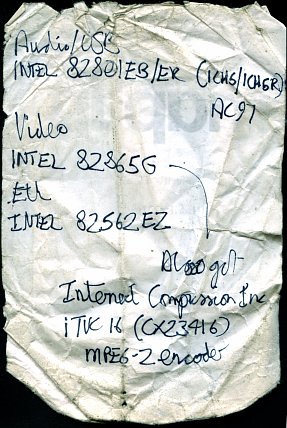 Audio/USB
INTEL 82801EB/ER (ICH5/ICH5R)
AC97
Video
INTEL 82865G
INTEL 82562EZ
Also got
Internext Compression Inc
iTVC 16 (CX23416)
MPEG-2 encoder